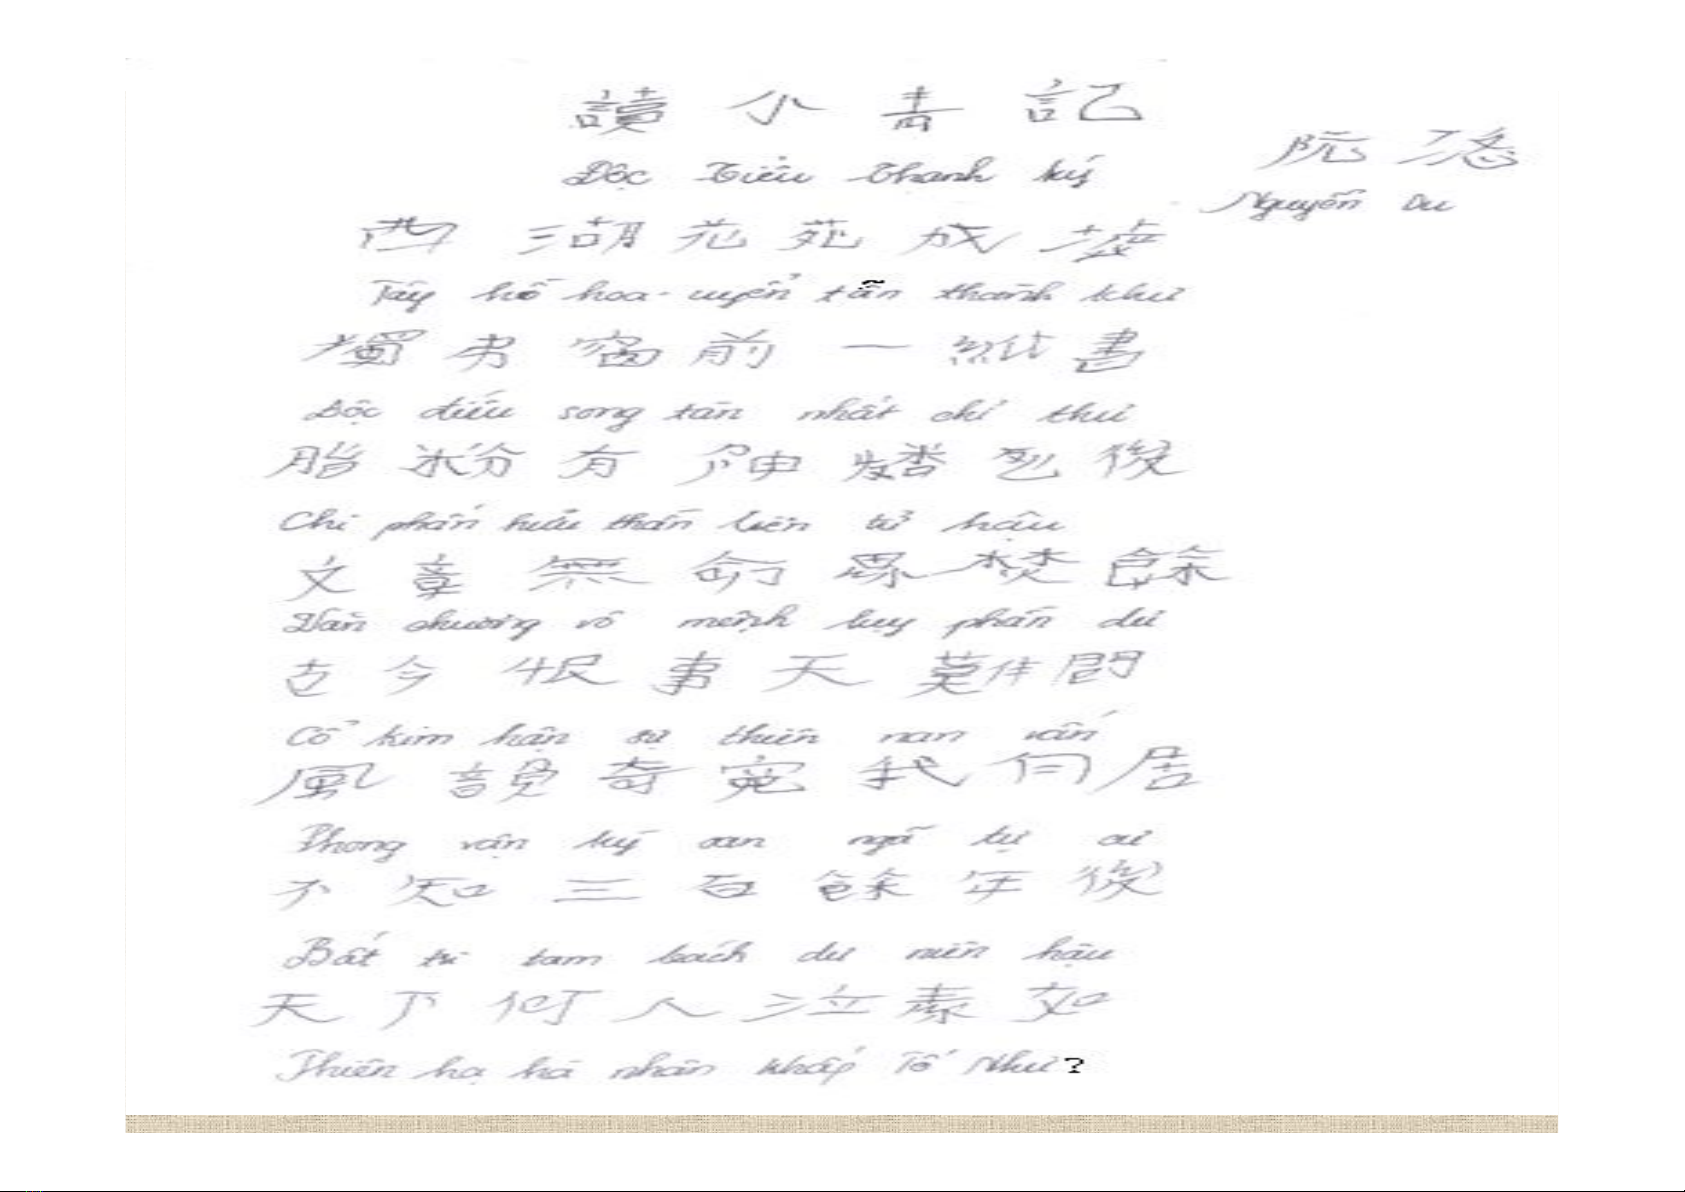 讀 小 青 記
Độc Tiểu Thanh ký
阮
Nguyễn Du
西 湖 花 苑 成 墟
Tây hồ hoa uyển tẫn thành khư
獨 弔 窗 前 一 紙 書
Độc điếu song tiền nhất chỉ thư
脂 粉 有 神 憐 死 後
Chi phấn hữu thần liên tử hậu
文 章 無 命 累 焚 餘
Văn chương vô mệnh lụy phần dư
古 今 恨 事 天 難 問
Cổ kim hận sự thiên nan vấn
風 韻 奇 冤 我 自 居
Phong vận kỳ oan ngã tự cư
不 知 三 百 餘 年 後
Bất tri tam bách dư niên hậu
天 下 何 人 泣 素 如
Thiên hạ hà nhân khấp Tố Như?